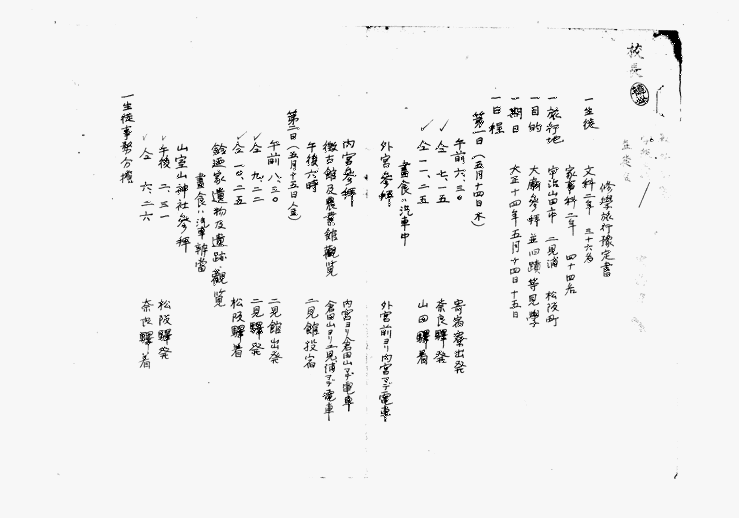 校長
修學旅行豫定書
一生徒 文科二年 三十六名
家事科二年 四十四名
一旅行地 宇治山田市 二見浦 松阪町
一目的 大廟參拜並旧蹟等見學
一期日 大正十四年五月十四日十五日
一日程
第一日(五月十四日木)
午前六、三〇 寄宿寮出発
仝 七、一五 奈良驛発
仝 一一、二五 山田驛着
晝食ハ汽車中
外宮參拜 外宮前ヨリ内宮マデ電車
内宮參拜 内宮ヨリ倉田山マデ電車
徴古館及農業館觀覧 倉田山ヨリ二見浦マデ電車
午後六時 二見館投宿
第二日(五月十五日金)
午前八、三〇 二見館出発
仝 九、二二 二見驛発
仝 一〇、二五 松阪驛着
鈴廼家遺物及遺跡觀覧
晝食ハ汽車辨當
山室山神社參拜
午後 二、三一 松阪驛発
仝 六、二六 奈良驛着
一生徒事務分擔